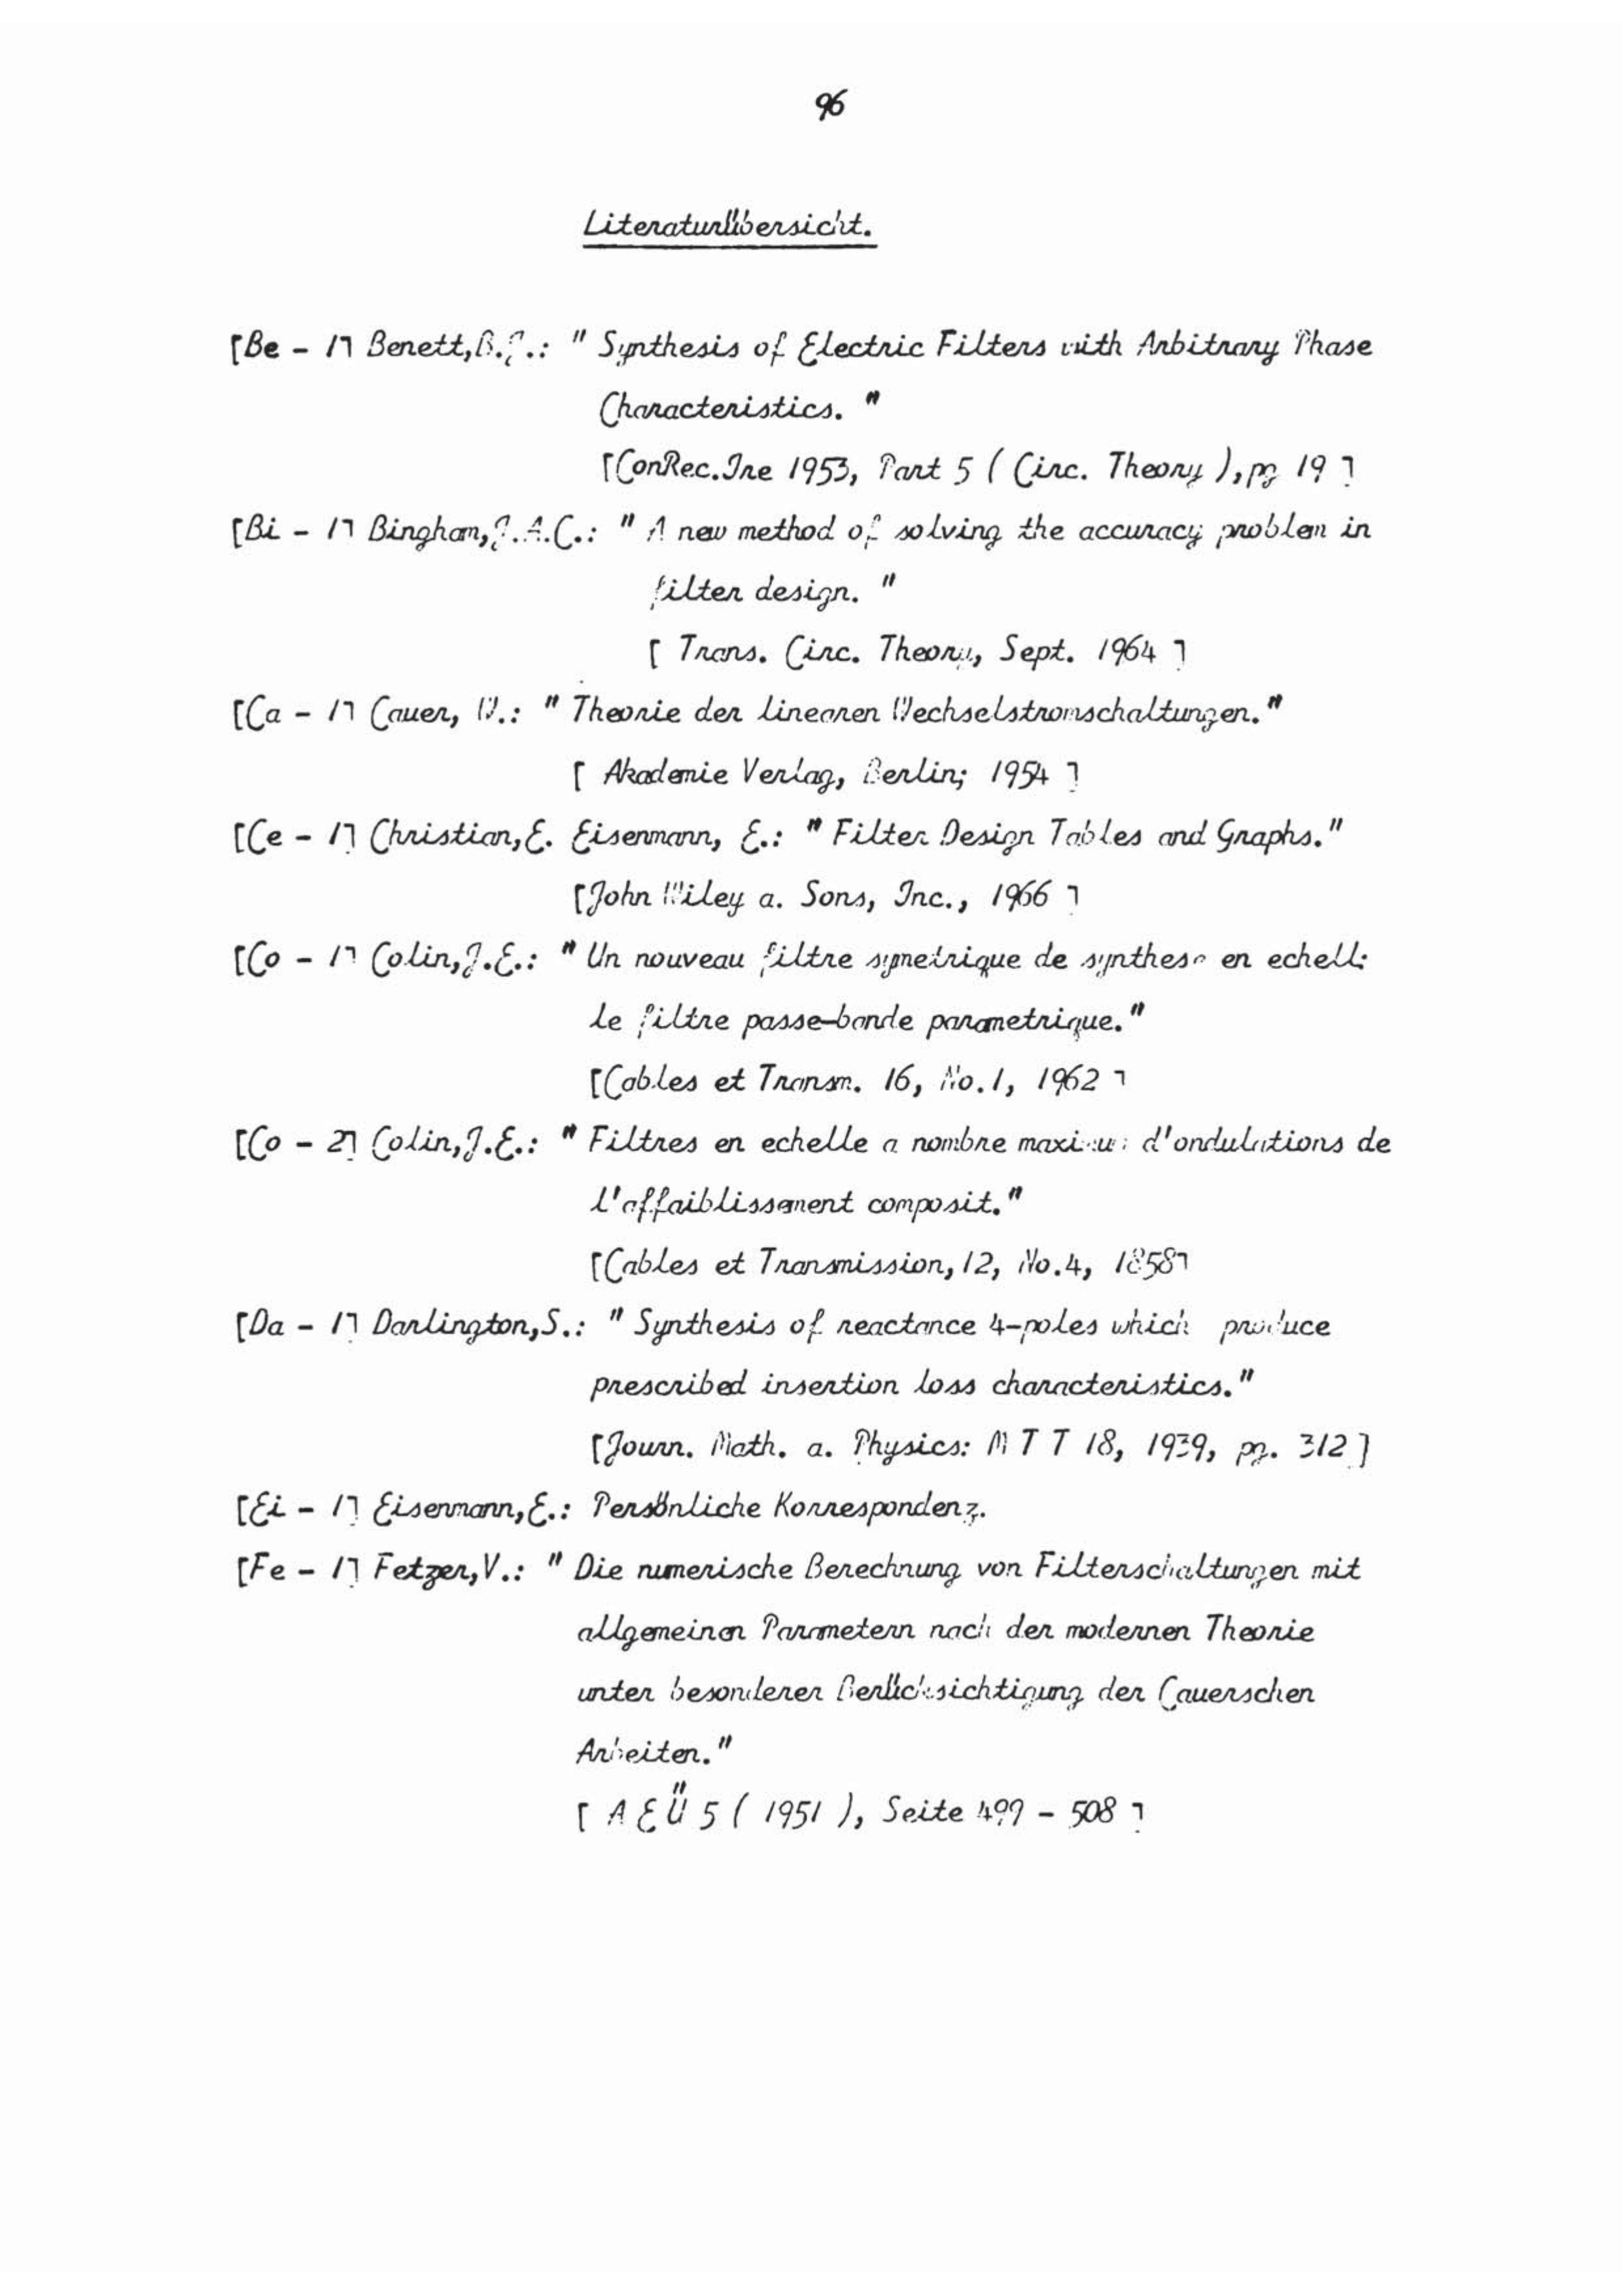 96
Literaturübersicht.
[Be - 1] Benett,B.J.: " Synthesis of Electric Filters with Arbitrary Phase
Characteristics. "
[ConRec.Ire 1953, Part 5 ( Circ. Theory ),pg 19 ]
[Bi - 1] Bingham,J.A.C.: " A new method of solving the accuracy problem in
filter design. "
[ Trans. Circ. Theory, Sept. 1964 ]
[Ca - 1] Cauer, W.: " Theorie der linearen Wechselstromschaltungen."
[ Akademie Verlag, Berlin; 1954 ]
[Ce - 1] Christian,E. Eisenmann, E.: " Filter Design Tables and Graphs."
[John Wiley a. Sons, Inc., 1966 ]
[Co - 1] Colin,J.E.: " Un nouveau filtre symetrique de synthese en echell:
le filtre passe-bande parametrique."
[Cables et Transm. 16, No.1, 1962 ]
[Co - 2] Colin,J.E.: " Filtres en echelle a nombre maximum d'ondulations de
l'affaiblissement composit."
[Cables et Transmission,12, No.4, 1858]
[Da - 1] Darlington,S.: " Synthesis of reactance 4-poles which produce
prescribed insertion loss characteristics."
[Journ. Math. a. Physics: M T T 18, 1939, pg. 312 ]
[Ei - 1] Eisenmann,E.: Persönliche Korrespondenz.
[Fe - 1] Fetzer,V.: " Die numerische Berechnung von Filterschaltungen mit
allgemeinen Parametern nach der modernen Theorie
unter besonderer Berücksichtigung der Cauerschen
Arbeiten."
[ A E Ü 5 ( 1951 ), Seite 499 - 508 ]